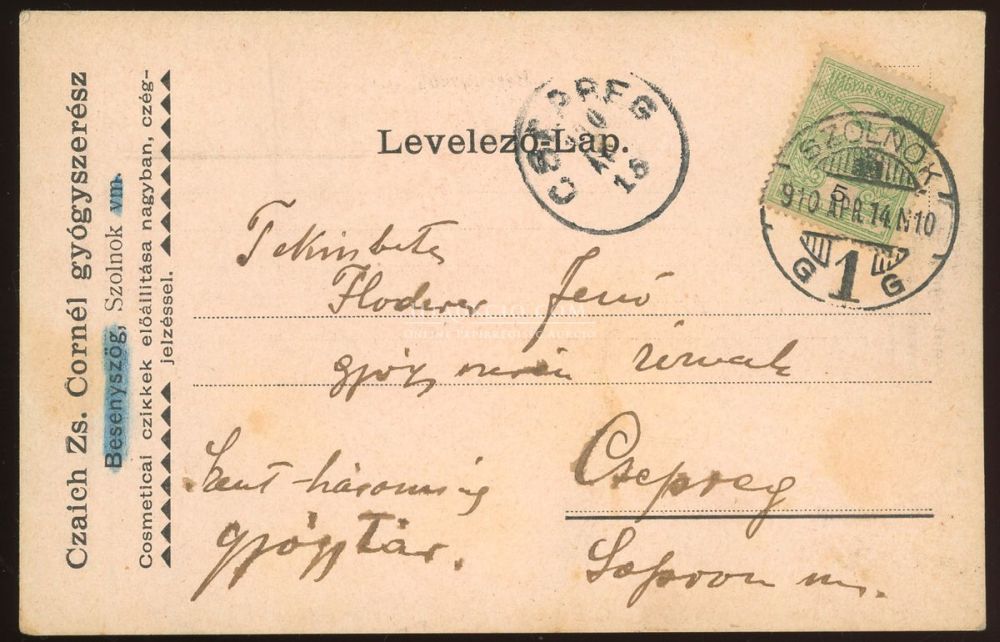 Czaich Zs. Cornél gyógyszerész
Besenyszög, Szolnok vm.
Cosmeticai czikkek előállitása nagyban, czég-
jelzéssel.
Levelező-Lap.
CSEPREG
MAGYAR KIR. POSTA
SZOLNOK
5
910 APR 14 N10
G 1 G
Tekintetes
Floderer Jenő
gyógyszerész úrnak
Csepreg
Sopron m.
Szent-háromság
gyógytár.